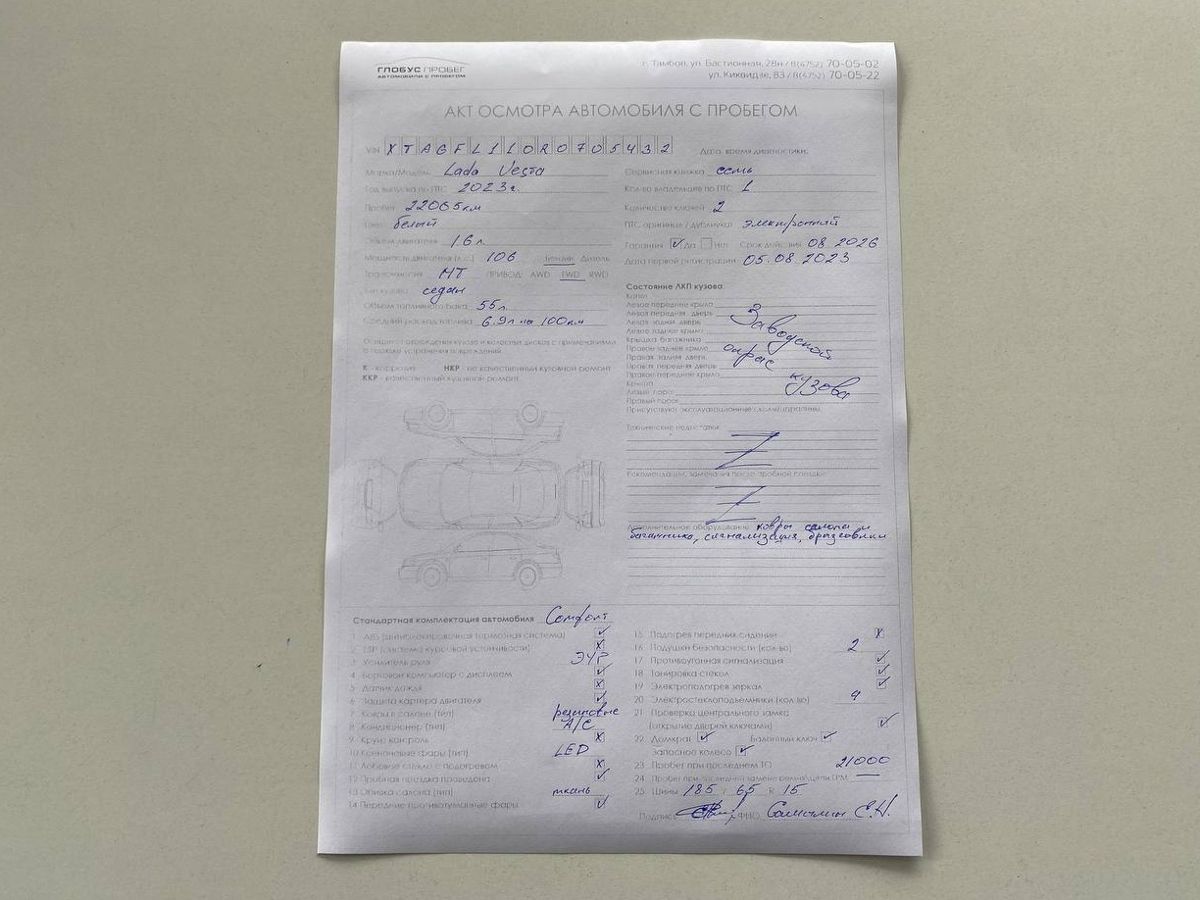 ГЛОБУС ПРОБЕГ
АВТОМОБИЛИ С ПРОБЕГОМ
г. Тамбов, ул. Бастионная, 28н / 8(4752) 70-05-02
ул. Киквидзе, 83 / 8(4752) 70-05-22
АКТ ОСМОТРА АВТОМОБИЛЯ С ПРОБЕГОМ
VIN XTAGFL110R0705432
Дата, время диагностики:
Марка/Модель Lada Vesta
Год выпуска по ПТС 2023г.
Пробег 22065км
Цвет белый
Объем двигателя 1.6 л
Мощность двигателя (л.с.) 106 Бензин Дизель
Трансмиссия МТ ПРИВОД: AWD FWD RWD
Тип кузова седан
Объем топливного бака 55л
Средний расход топлива 6.9л на 100км
К - коррозия НКР - не качественный кузовной ремонт
ККР - качественный кузовной ремонт
Сервисная книжка есть
Кол-во владельцев по ПТС 1
Количество ключей 2
ПТС оригинал / дубликат электронный
Гарантия ✓ Да Нет Срок действия 08.2026
Дата первой регистрации 05.08.2023
Состояние ЛКП кузова:
Капот
Левое переднее крыло
Левая передняя дверь
Левая задняя дверь
Левое заднее крыло
Крышка багажника
Правое заднее крыло
Правая задняя дверь
Правая передняя дверь
Правое переднее крыло
Крыша
Левый порог
Правый порог
Заводской
окрас
кузова
Технические недостатки:
Z
Рекомендации, замечания после пробной поездки:
Z
Дополнительное оборудование: ковры салона и
багажника, сигнализация, брызговики
Стандартная комплектация автомобиля Comfort
1 ABS (антиблокировочная тормозная система) ✓
2 ESP (система курсовой устойчивости) X
3 Усилитель руля ЭУР
4 Бортовой компьютер с дисплеем ✓
5 Датчик дождя X
6 Защита картера двигателя ✓
7 Ковры в салоне (тип) резиновые
8 Кондиционер (тип) A/C
9 Круиз контроль X
10 Ксеноновые фары (тип) LED
11 Лобовое стекло с подогревом X
12 Пробная поездка проведена ✓
13 Обивка салона (тип) ткань
14 Передние противотуманные фары ✓
15 Подогрев передних сидений X
16 Подушки безопасности (кол-во) 2
17 Противоугонная сигнализация ✓
18 Тонировка стекол ✓
19 Электроподогрев зеркал ✓
20 Электростеклоподъемники (кол-во) 4
21 Проверка центрального замка
(открытие дверей ключами) ✓
22 Домкрат ✓ Баллонный ключ ✓
Запасное колесо ✓
23 Пробег при последнем ТО 21000
24 Пробег при последней замене ремня/цепи ГРМ —
25 Шины 185 / 65 R 15
Подпись (ФИО)